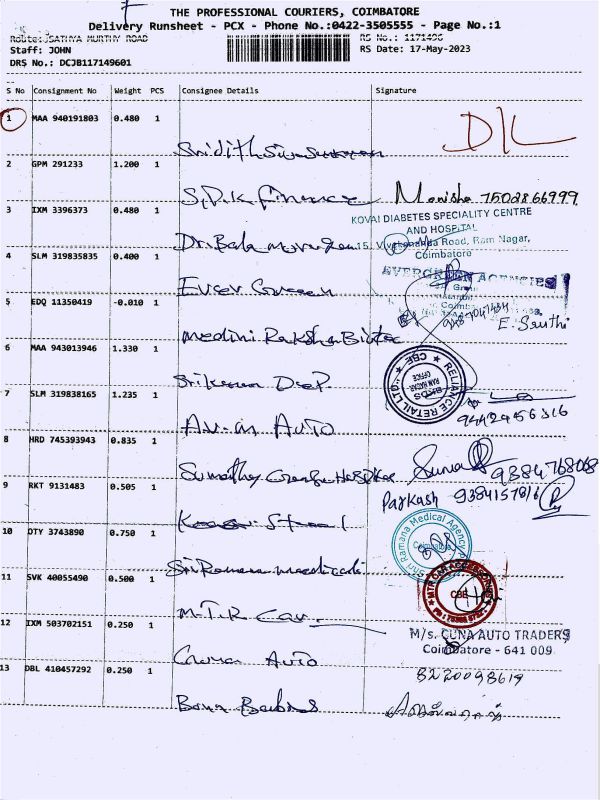 THE PROFESSIONAL COURIERS, COIMBATORE
Delivery Runsheet - PCX - Phone No.:0422-3505555 - Page No.:1
Route: JSATHYA MURTHY ROAD
RS No.: 1171496
Staff: JOHN
RS Date: 17-May-2023
DRS No.: DCJB117149601
S No Consignment No Weight PCS Consignee Details Signature
1 MAA 940191803 0.480 1 D/L
2 GPM 291233 1.200 1
S.D.K finance Monisha 7502866999
3 IXM 3396373 0.480 1
KOVAI DIABETES SPECIALITY CENTRE
AND HOSPITAL
Dr. Bala murugan 15, Vivekananda Road, Ram Nagar,
Coimbatore
4 SLM 319835835 0.400 1
EVERGREEN AGENCIES
Ever Green
5 EDQ 11350419 -0.010 1
E. Santhi
Medini Raksha Biotec
6 MAA 943013946 1.330 1
RELIANCE RETAIL LTD., CBE
RAM NAGAR
OFFICE
7 SLM 319838165 1.235 1
Auto 9442456316
8 HRD 745393943 0.835 1
9384768068
9 RKT 9131483 0.505 1
Parkash 9384157816
10 OTY 3743890 0.750 1
Shri Ramana Medical Agency
Coimbatore
Sri Ramana medicals
11 SVK 40055490 0.500 1
CBE
M.T.R Car
12 IXM 503702151 0.250 1
M/s. CUNA AUTO TRADERS
Coimbatore - 641 009
Cuna Auto
8220098619
13 DBL 410457292 0.250 1